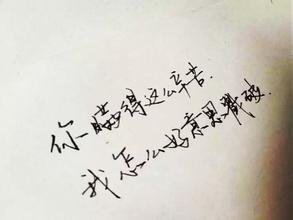 你瞒得这么辛苦.
我怎么好意思戳破.